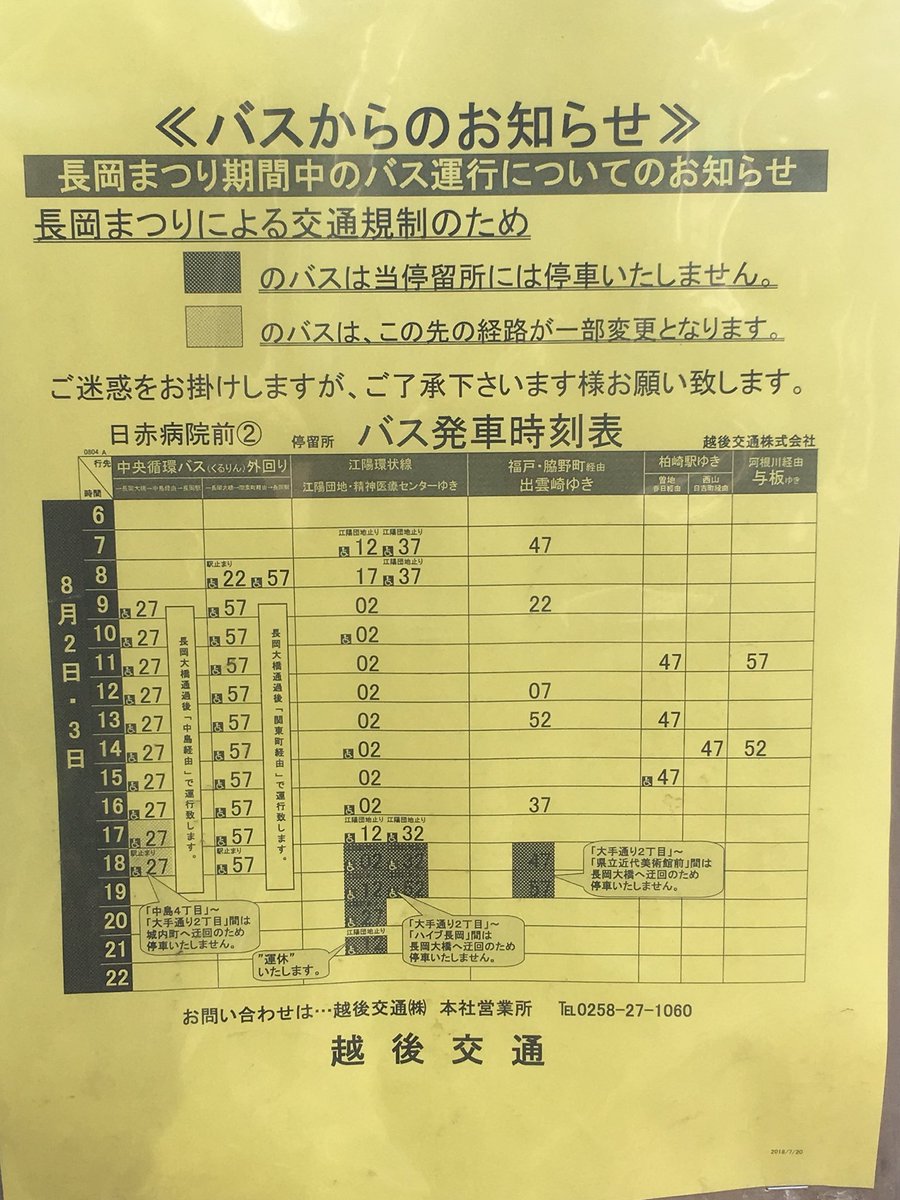 ≪バスからのお知らせ≫
長岡まつり期間中のバス運行についてのお知らせ
長岡まつりによる交通規制のため
のバスは当停留所には停車いたしません。
のバスは、この先の経路が一部変更となります。
ご迷惑をお掛けしますが、ご了承下さいます様お願い致します。
日赤病院前② 停留所 バス発車時刻表 越後交通株式会社
0804 A
行先
時間
中央循環バス(くるりん)外回り
江陽環状線
江陽団地・精神医療センターゆき
福戸・脇野町経由
出雲崎ゆき
柏崎駅ゆき
曽地
春日経由
西山
日吉町経由
河根川経由
与板ゆき
8月2日・3日
6
江陽団地止り 江陽団地止り
7 12 37 47
駅止まり 江陽団地止り
8 22 57 17 37
9 27 57 02 22
10 27 57 02
11 27 57 02 47 57
12 27 57 02 07
13 27 57 02 52 47
14 27 57 02 47 52
15 27 57 02 47
16 27 57 02 37
江陽団地止り 江陽団地止り
17 27 57 12 32
駅止まり 駅止まり
18 27 57 47
19 12 57
20 27
江陽団地止り
21
22
長岡大橋通過後「中島経由」で運行致します。
長岡大橋通過後「関東町経由」で運行致します。
「大手通り2丁目」～
「県立近代美術館前」間は
長岡大橋へ迂回のため
停車いたしません。
「中島4丁目」～
「大手通り2丁目」間は
城内町へ迂回のため
停車いたしません。
「大手通り2丁目」～
「ハイブ長岡」間は
長岡大橋へ迂回のため
停車いたしません。
"運休"
いたします。
お問い合わせは…越後交通㈱ 本社営業所 ℡0258-27-1060
越後交通
2018/7/20